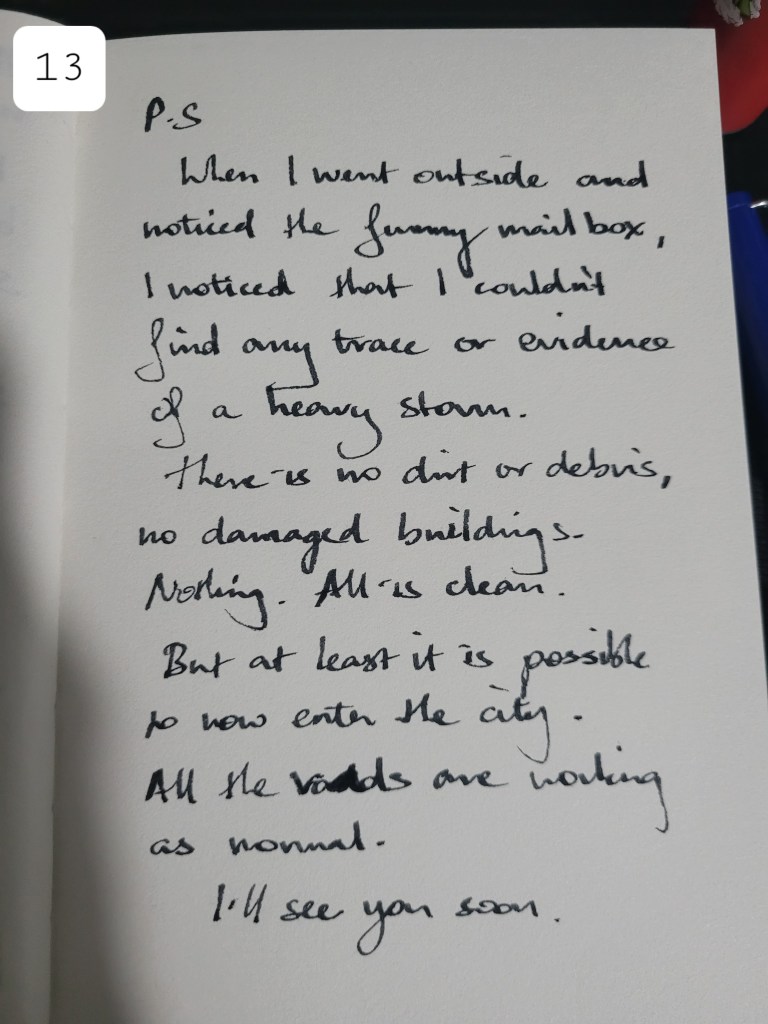 13
P.S
When I went outside and
noticed the funny mail box,
I noticed that I couldn't
find any trace or evidence
of a heavy storm.
There is no dirt or debris,
no damaged buildings.
Nothing. All is clean.
But at least it is possible
to now enter the city.
All the roads are working
as normal.
I'll see you soon.